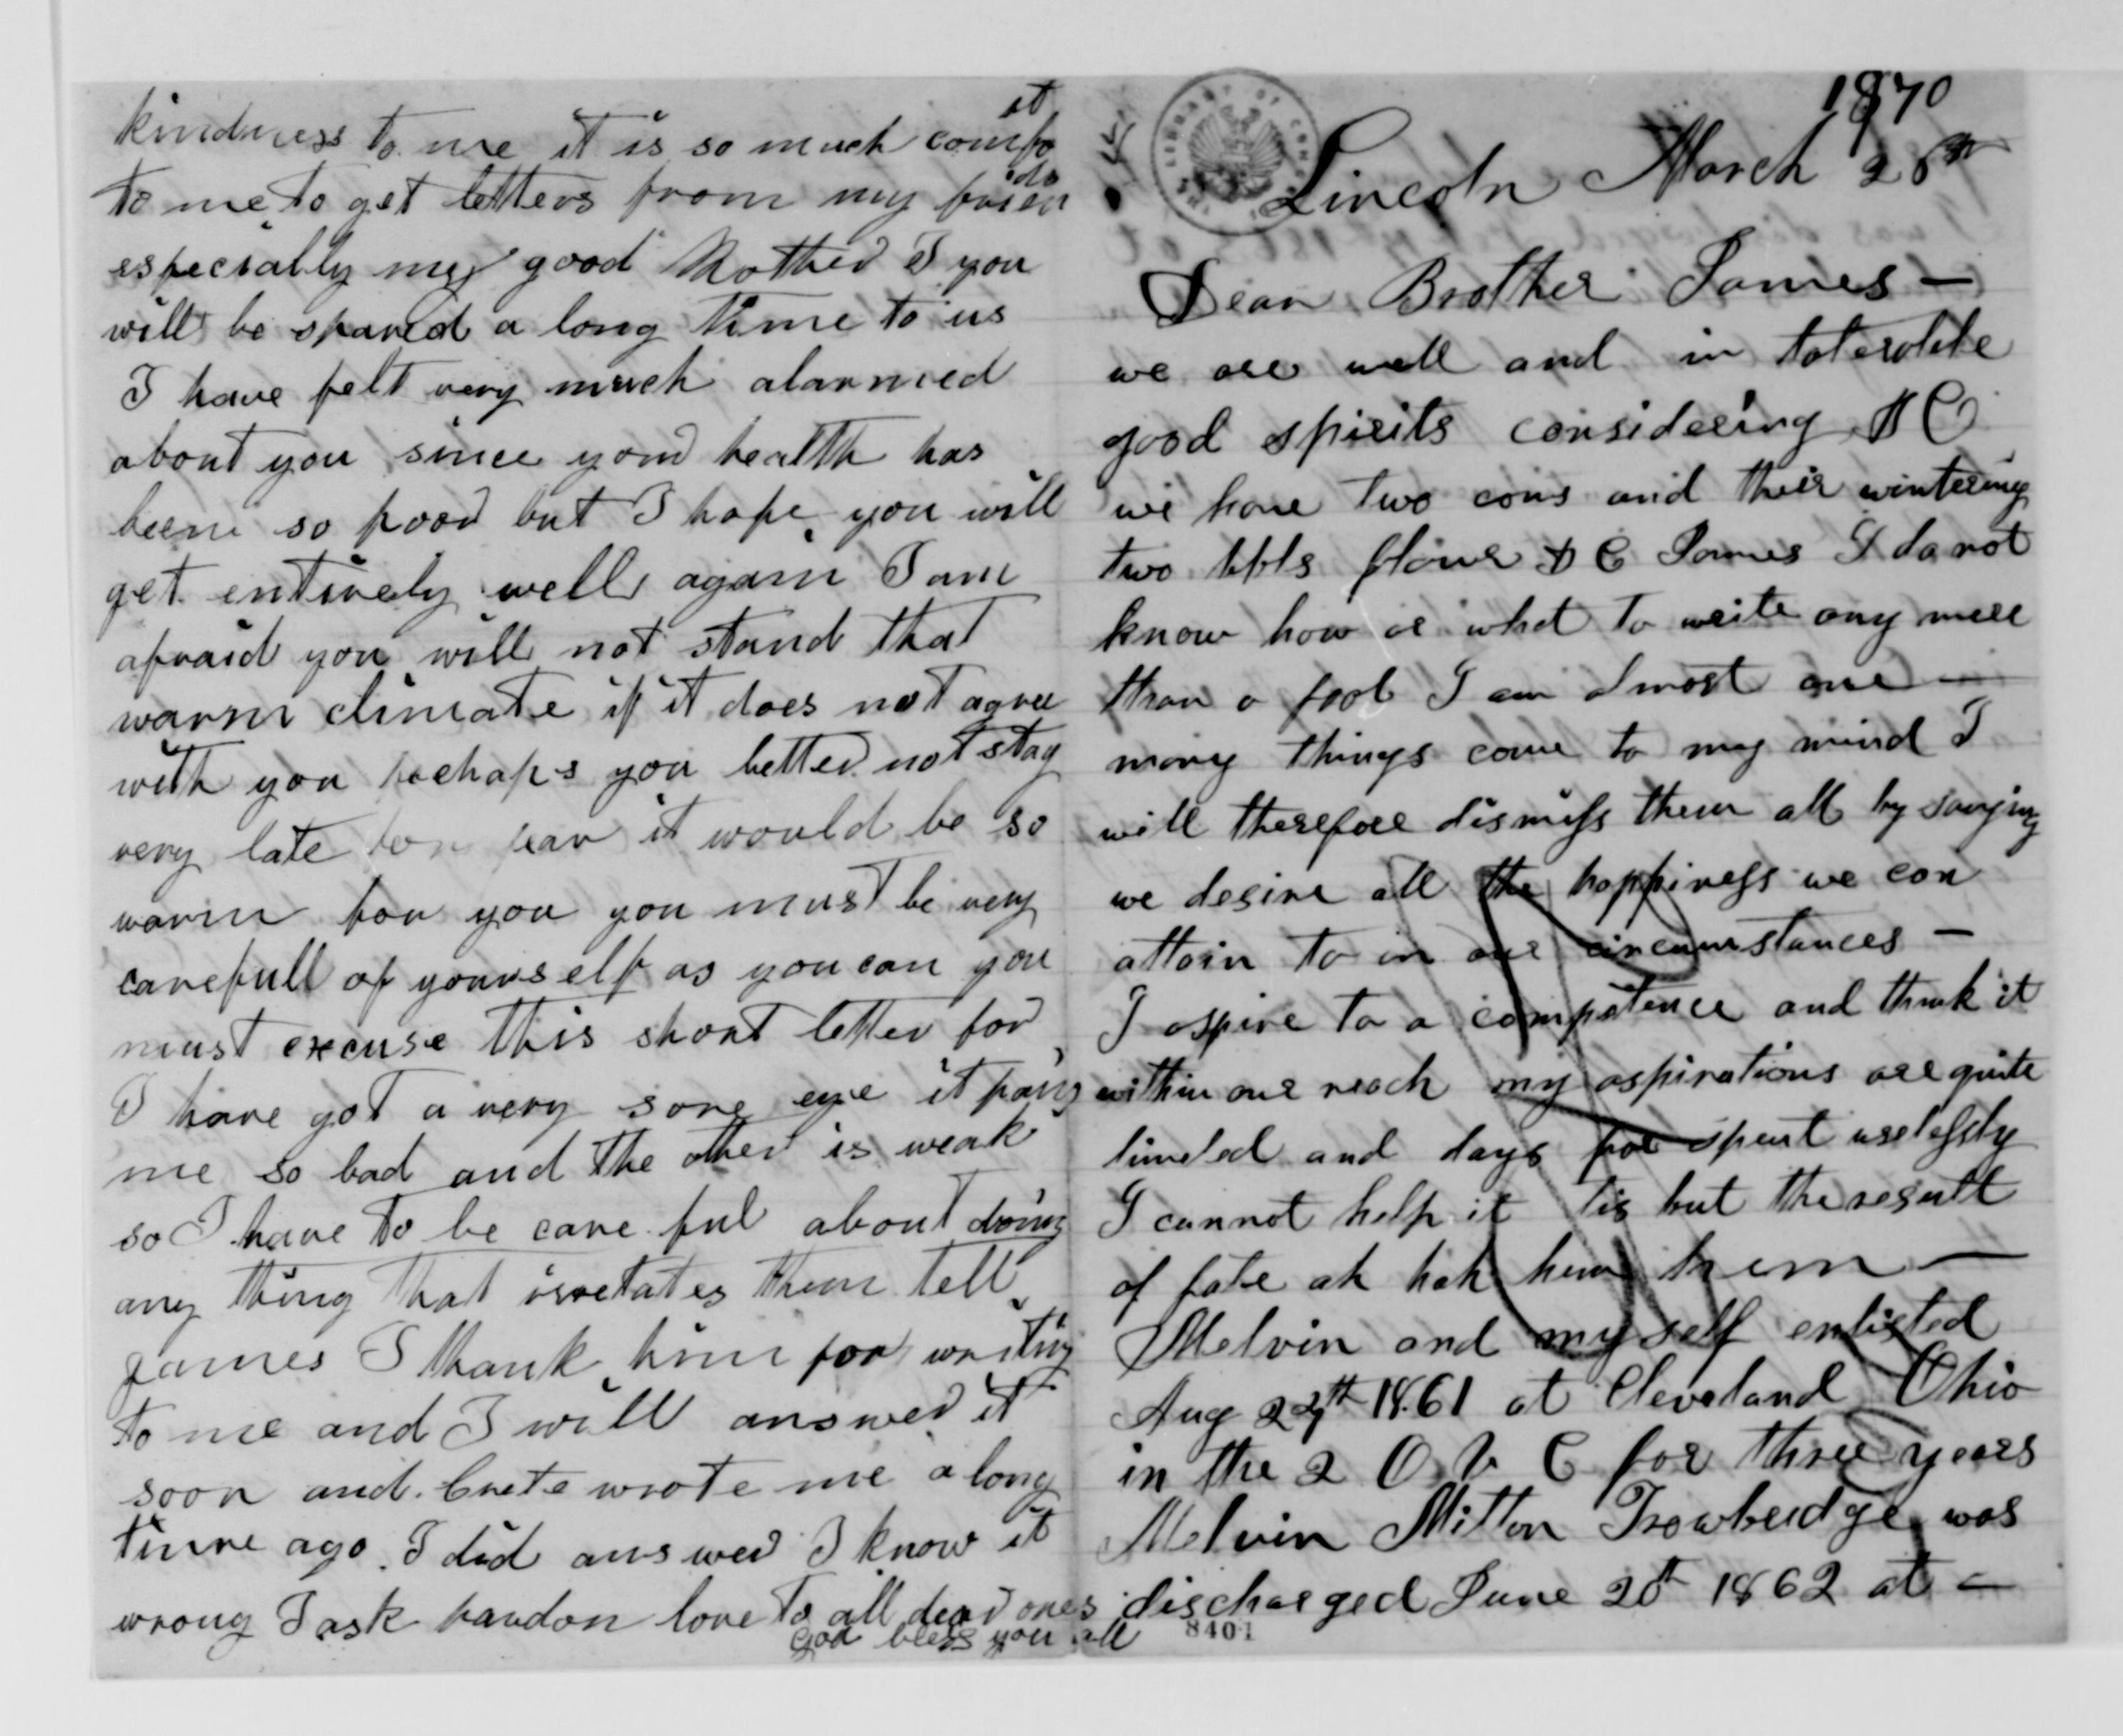 kindness to me it is so much comfo
rt
to me to get letters from my frien
ds
especially my good Mother I you
will be spared a long time to us
I have felt very much alarmed
about you since your health has
been so poor but I hope you will
get entirely well again I am
afraid you will not stand that
warm climate if it does not agree
with you perhaps you better not stay
very late for fear it would be so
warm for you you must be very
carefull of yourself as you can you
must excuse this short letter for
I have got a very sore eye it pains
me so bad and the other is weak
so I have to be care ful about doing
any thing that irretates them tell
James I thank him for writing
to me and I will answer it
soon and Crete wrote me a long
time ago. I did answer I know it
wrong I ask pardon love to all dear ones
God bless you all
1870
Lincoln March
Dear Brother James —
we are well and in tolerable
good spirits considering &C
we have two cows and their wintering
two bbls flour & C James I do not
know how or what to write any more
than a fool I am almost one —
many things come to my mind I
will therefore dismiss them all by saying
we desire all the happiness we can
attain to in our circumstances —
I aspire to a competence and think it
within our reach my aspirations are quite
limited and days are spent uselessly
I cannot help it tis but the result
of fate ah hah hem hem —
Melvin and myself enlisted
Aug 1861 at Cleveland Ohio
in the 2 O. V. C for three years
Melvin Milton Trowbridge was
discharged June 1862 at —
8401